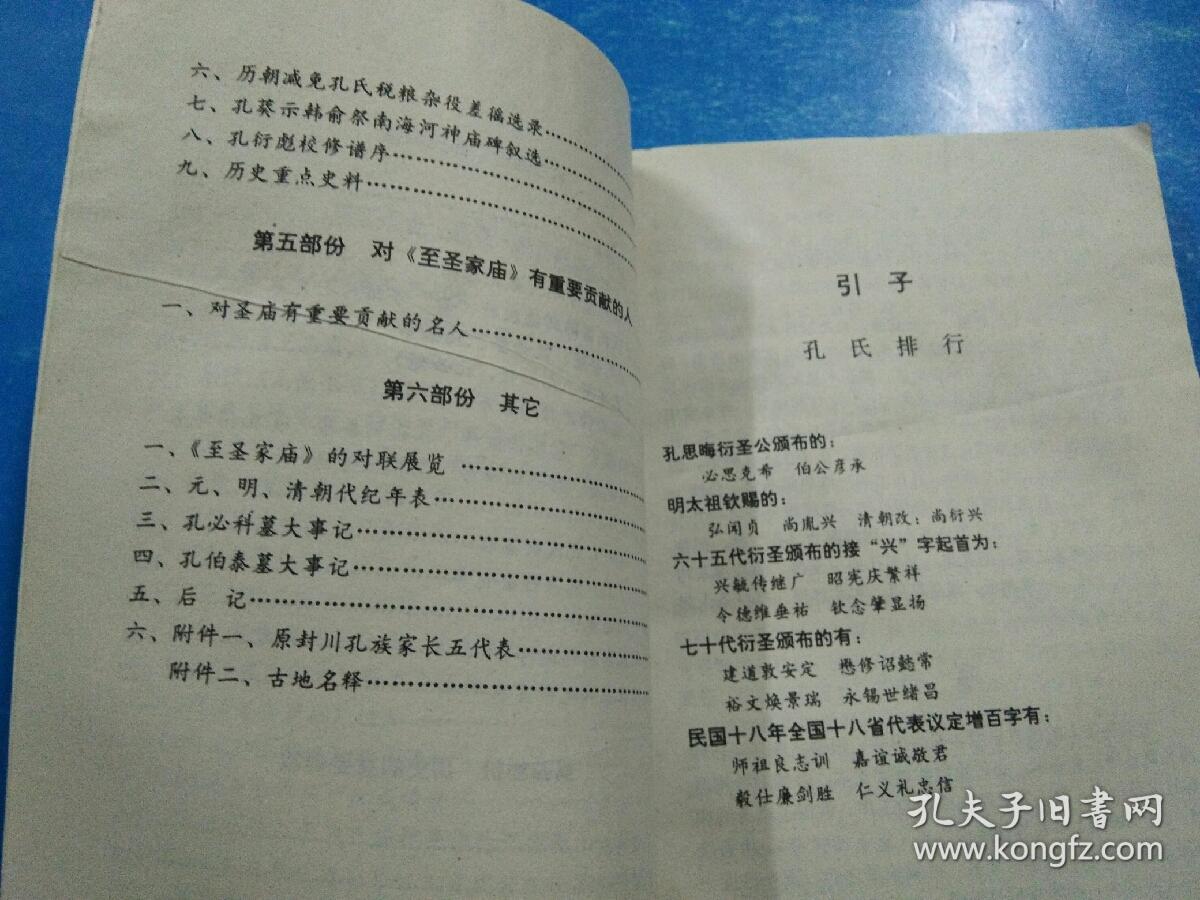 六、历朝减免孔氏税粮杂役差徭选录………
七、孔葵示韩俞祭南海河神庙碑叙选………
八、孔衍彪校修谱序………
九、历史重点史料………
第五部份 对《至圣家庙》有重要贡献的人
一、对圣庙有重要贡献的名人………
第六部份 其它
一、《至圣家庙》的对联展览 ………
二、元、明、清朝代纪年表………
三、孔必科墓大事记………
四、孔伯泰墓大事记………
五、后 记………
六、附件一、原封川孔族家长五代表………
附件二、古地名释………
引子
孔氏排行
孔思晦衍圣公颁布的:
必思克希 伯公彦承
明太祖钦赐的:
弘闻贞 尚胤兴 清朝改:尚衍兴
六十五代衍圣颁布的接“兴”字起首为:
兴毓传继广 昭宪庆繁祥
令德维垂祐 钦念肇显扬
七十代衍圣颁布的有:
建道敦安定 懋修诏懿常
裕文焕景瑞 永锡世绪昌
民国十八年全国十八省代表议定增百字有:
师祖良志训 嘉谊诚敬君
毅仕廉剑胜 仁义礼忠信
孔夫子旧书网
www.kongfz.com